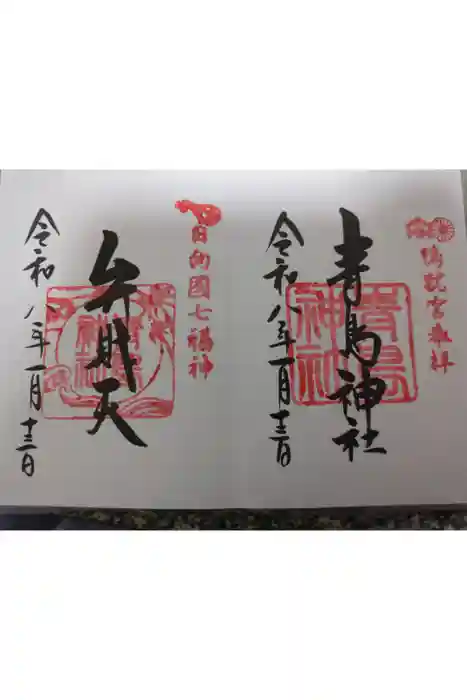 鴨就宮奉拝
青島神社
青島
神社
令和八年一月十三日
日向國七福神
弁財天
令和八年一月十三日